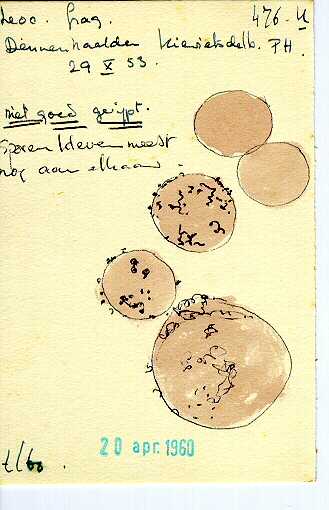 Leoc. frag. 476-U
Dennenaalden Kievietsdelb. PH.
29 X 53.
niet goed gerijpt.
Sporen kleven meest
nog aan elkaar.
20 apr. 1960